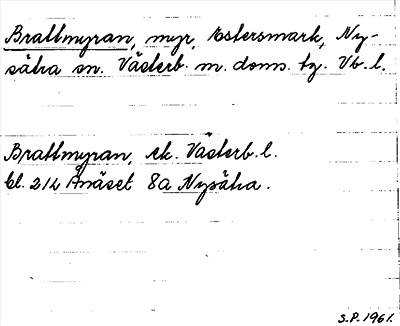 Brattmyran, myr, Estersmark, Ny-
sätra sn. Västerb. m. doms. tg. Vb. l.
Brattmyran, ek. Västerb. l.
bl. 212 Ånäset 8a Nysätra.
S.P. 1961.